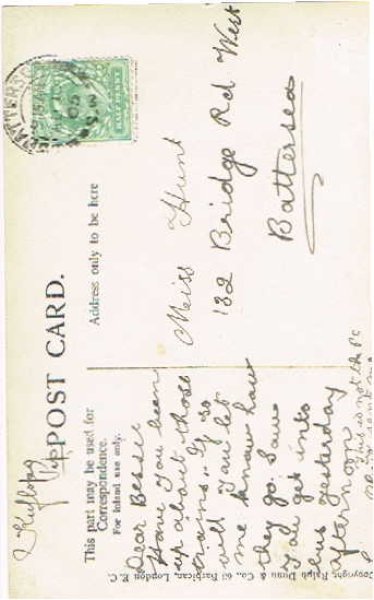 POST CARD.
This part may be used for
Correspondence.
For Inland use only.
Address only to be here
HALFPENNY
Dear Bessie
Have you been
up about those
trains. If so
will you let
me know how
they go. Saw
you get into
bus yesterday
afternoon
This is not the PC
Miss Hunt
132 Bridge Rd West
Battersea
Copyright, Ralph Dunn & Co., 63 Barbican, London E.C.